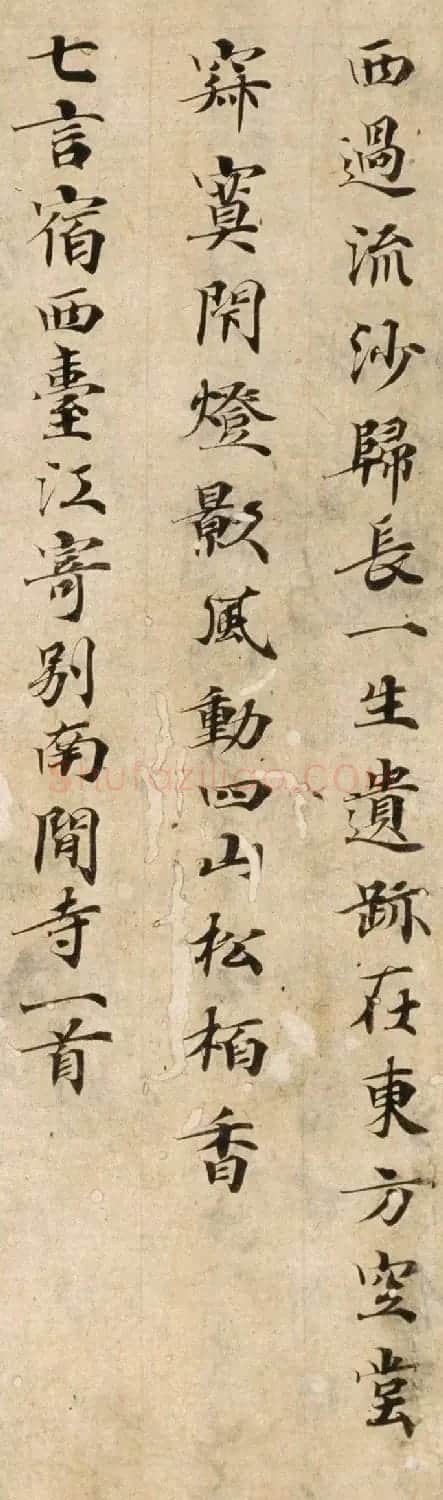 西過流沙歸長一生遺跡在東方空堂
寂寞閇燈影風動四山松栢香
七言宿西臺江寄別南閒寺一首